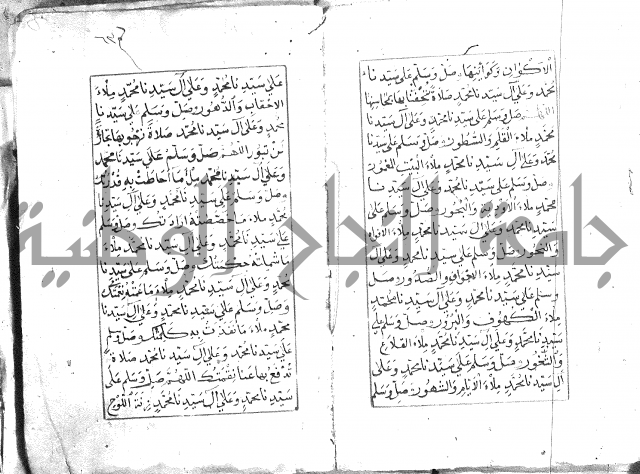 الاكوان وكوائنها وصل وسلم على سيدنا
محمد وعلى آل سيدنا محمد صلاة تخصنا بها بمحاسنها
اللهم صل وسلم على سيدنا محمد وعلى آل سيدنا
محمد ملاء القلم والسطور وصل وسلم على سيدنا
محمد وعلى آل سيدنا محمد ملاء البيت المعمور
وصل وسلم على سيدنا محمد وعلى آل سيدنا
محمد ملاء والبحور وصل وسلم على
سيدنا محمد وعلى آل سيدنا محمد ملاء
وصل وسلم على سيدنا محمد وعلى آل
سيدنا محمد ملاء والصدور وصل
وسلم على سيدنا محمد وعلى آل سيدنا محمد
ملاء الكهوف وصل وسلم على
سيدنا محمد وعلى آل سيدنا محمد ملاء القلاع
والثغور وصل وسلم على سيدنا محمد وعلى
آل سيدنا محمد ملاء الايام والشهور وصل وسلم
على سيدنا محمد وعلى آل سيدنا محمد ملاء
الاحقاب والدهور وصل وسلم على سيدنا
محمد وعلى آل سيدنا محمد صلاة نرجوا بها تجارة
لن تبور اللهم صل وسلم على سيدنا محمد
وعلى آل سيدنا محمد ملاء ما احاطت به قدرتك
وصل وسلم على سيدنا محمد وعلى آل سيدنا
محمد ملاء ما خصصته ارادتك وصل وسلم
على سيدنا محمد وعلى آل سيدنا محمد ملاء
ما شانه حكمتك وصل وسلم على سيدنا
محمد وعلى آل سيدنا محمد ملاء ما
وصل وسلم على سيدنا محمد وعلى آل سيدنا
محمد ملاء ما نفذت به كلمتك وصل وسلم
على سيدنا محمد وعلى آل سيدنا محمد صلاة
تدفع بها عنا نقمتك اللهم صل وسلم على
سيدنا محمد وعلى آل سيدنا محمد زنة اللوح
جامعة النجاح الوطنية